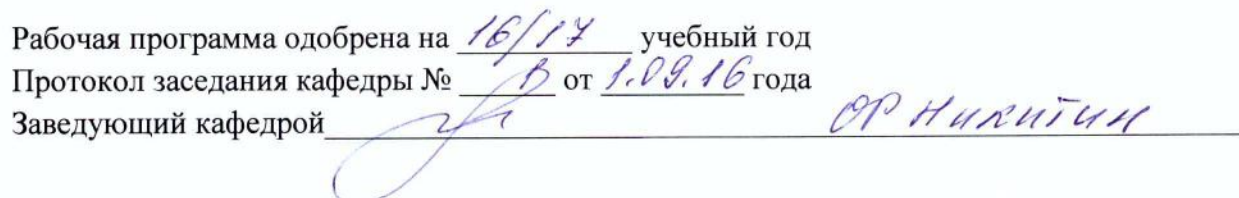 Рабочая программа одобрена на 16/17 учебный год
Протокол заседания кафедры № от 1.09.16 года
Заведующий кафедрой ОР Никитин